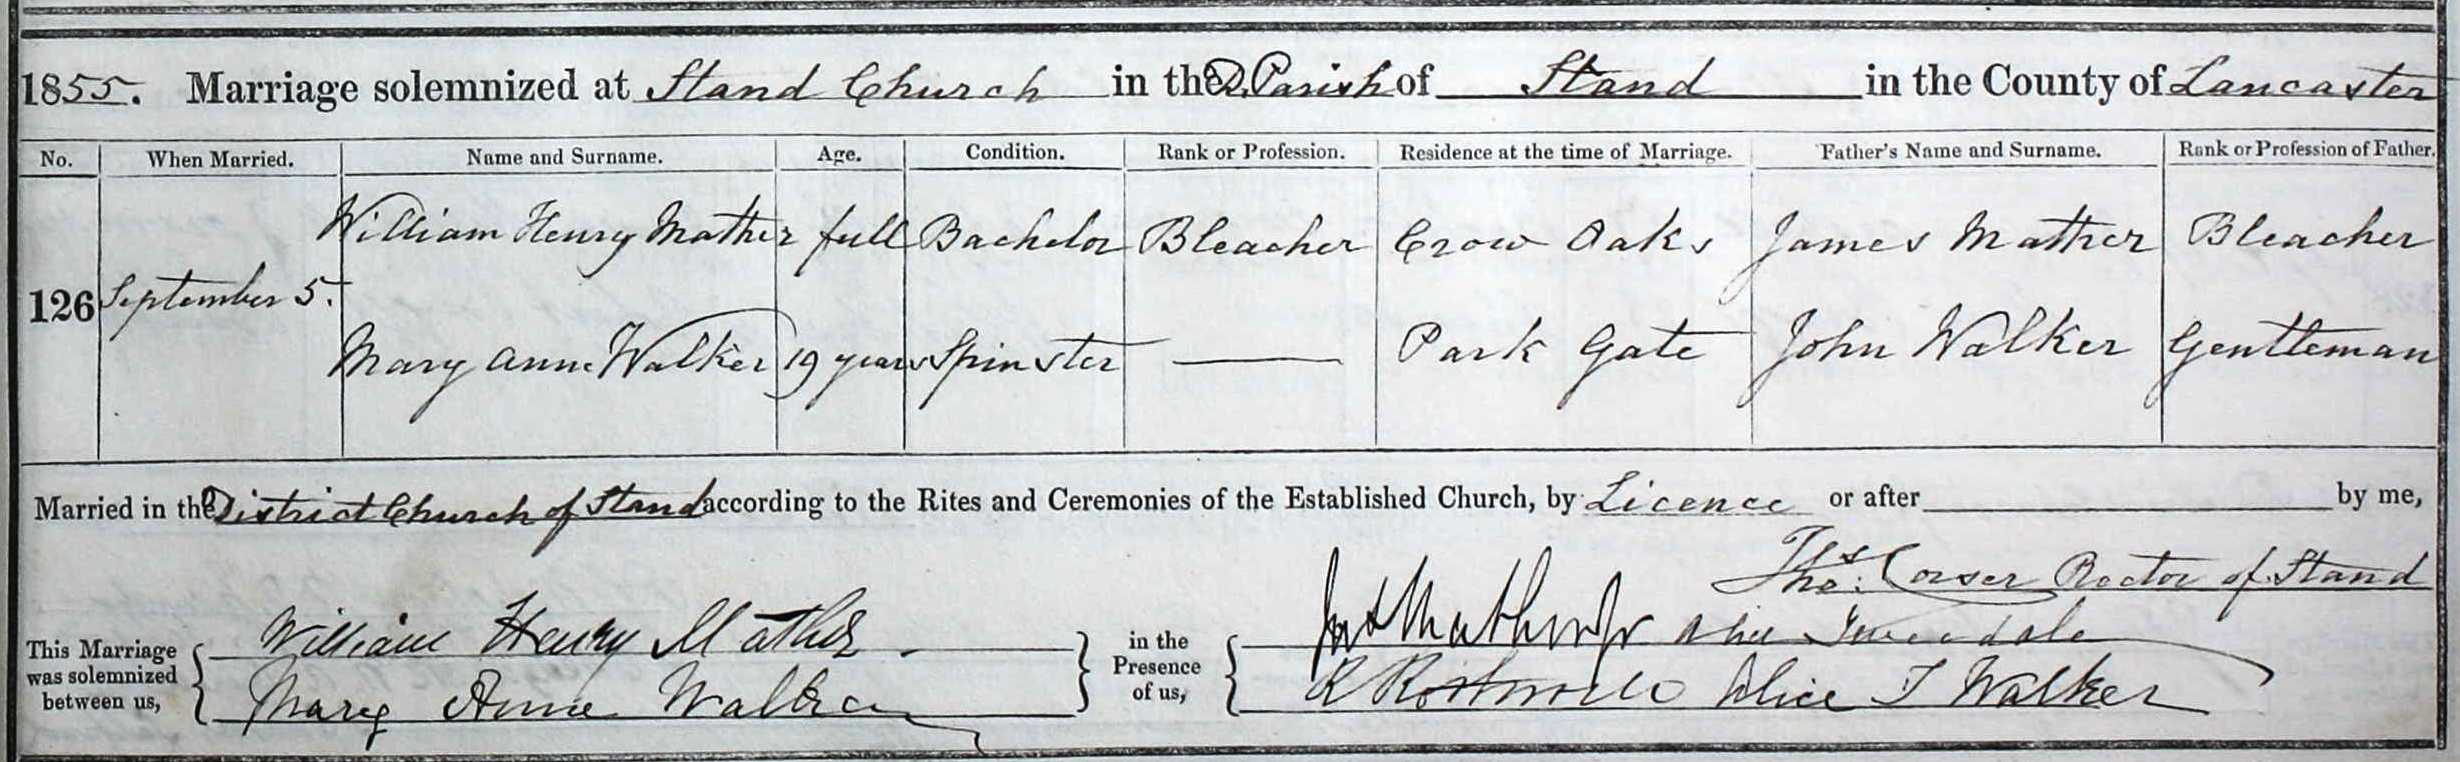 1855. Marriage solemnized at Stand Church in the D. Parish of Stand in the County of Lancaster
No. When Married. Name and Surname. Age. Condition. Rank or Profession. Residence at the time of Marriage. Father's Name and Surname. Rank or Profession of Father.
William Henry Mather full Bachelor Bleacher Crow Oaks James Mather Bleacher
126 September 5.
Mary Anne Walker 19 years Spinster Park Gate John Walker Gentleman
Married in the District Church of Stand according to the Rites and Ceremonies of the Established Church, by Licence or after by me,
Thos. Corser Rector of Stand
This Marriage was solemnized between us,
William Henry Mather.
Mary Anne Walker
in the Presence of us,
Mather Jr Tweedale
R Rothwell Alice T Walker